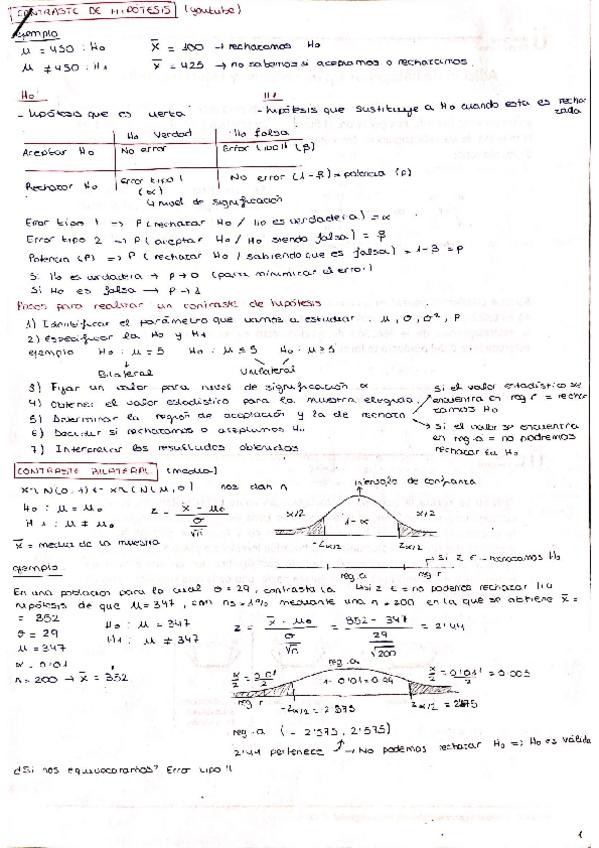 CONTRASTE DE HIPÓTESIS (youtube)
ejemplo
μ = 450 : H₀    x̄ = 100 → rechazamos H₀
μ ≠ 450 : H₁    x̄ = 425 → no sabemos si aceptamos o rechazamos.
H₀    H₁
- hipótesis que es cierta    - hipótesis que sustituye a H₀ cuando esta es rechazada
H₀ Verdad    H₀ falsa
Aceptar H₀    No error    Error tipo II (β)
Rechazar H₀    Error tipo I (α)    No error (1-β) = potencia (p)
↳ nivel de significación
Error tipo 1 → P(rechazar H₀ / H₀ es verdadera) = α
Error tipo 2 → P(aceptar H₀ / H₀ siendo falsa) = β
Potencia (P) → P(rechazar H₀ / sabiendo que es falsa) = 1-β = P
Si H₀ es verdadera → p→0 (para minimizar el error)
Si H₀ es falsa → p→1
Pasos para realizar un contraste de hipótesis
1) Identificar el parámetro que vamos a estudiar. μ, σ, σ², p
2) Especificar la H₀ y H₁
ejemplo    H₀ : μ = 5    H₀ : μ ≤ 5    H₀ : μ ≥ 5
Bilateral    Unilateral
3) Fijar un valor para nivel de significación α
4) Obtener el valor estadístico para la muestra elegida
5) Determinar la región de aceptación y la de rechazo
si el valor estadístico se encuentra en reg r = rechazamos H₀
si el valor se encuentra en reg.a = no podremos rechazar la H₀
6) Decidir si rechazamos o aceptamos H₀
7) Interpretar los resultados obtenidos
CONTRASTE BILATERAL (media)
nos dan n
intervalo de confianza
H₀ : μ = μ₀    z = (x̄ - μ₀) / (σ/√n)
H₁ : μ ≠ μ₀
x̄ = media de la muestra
α/2    1-α    α/2
-zα/2    zα/2
reg.a    reg r
→ si z ∈ → rechazamos H₀
↳ si z ∈ = no podemos rechazar H₀
ejemplo
En una población para la cual σ = 29, contrasta la
hipótesis de que μ = 347, con ns = 1% mediante una n = 200 en la que se obtiene x̄ =
= 352
σ = 29    H₀ : μ = 347    z = (x̄ - μ₀) / (σ/√n) = (352 - 347) / (29/√200) = 2'44
μ = 347    H₁ : μ ≠ 347
α = 0'01
n = 200 → x̄ = 352
reg.a
α/2 = 0'01/2 = 0.005
reg r    -zα/2 = 2'575    reg r
reg.a (-2'575, 2'575)
2'44 pertenece → No podemos rechazar H₀ => H₀ es válida
¿Si nos equivocáramos? Error tipo II
1